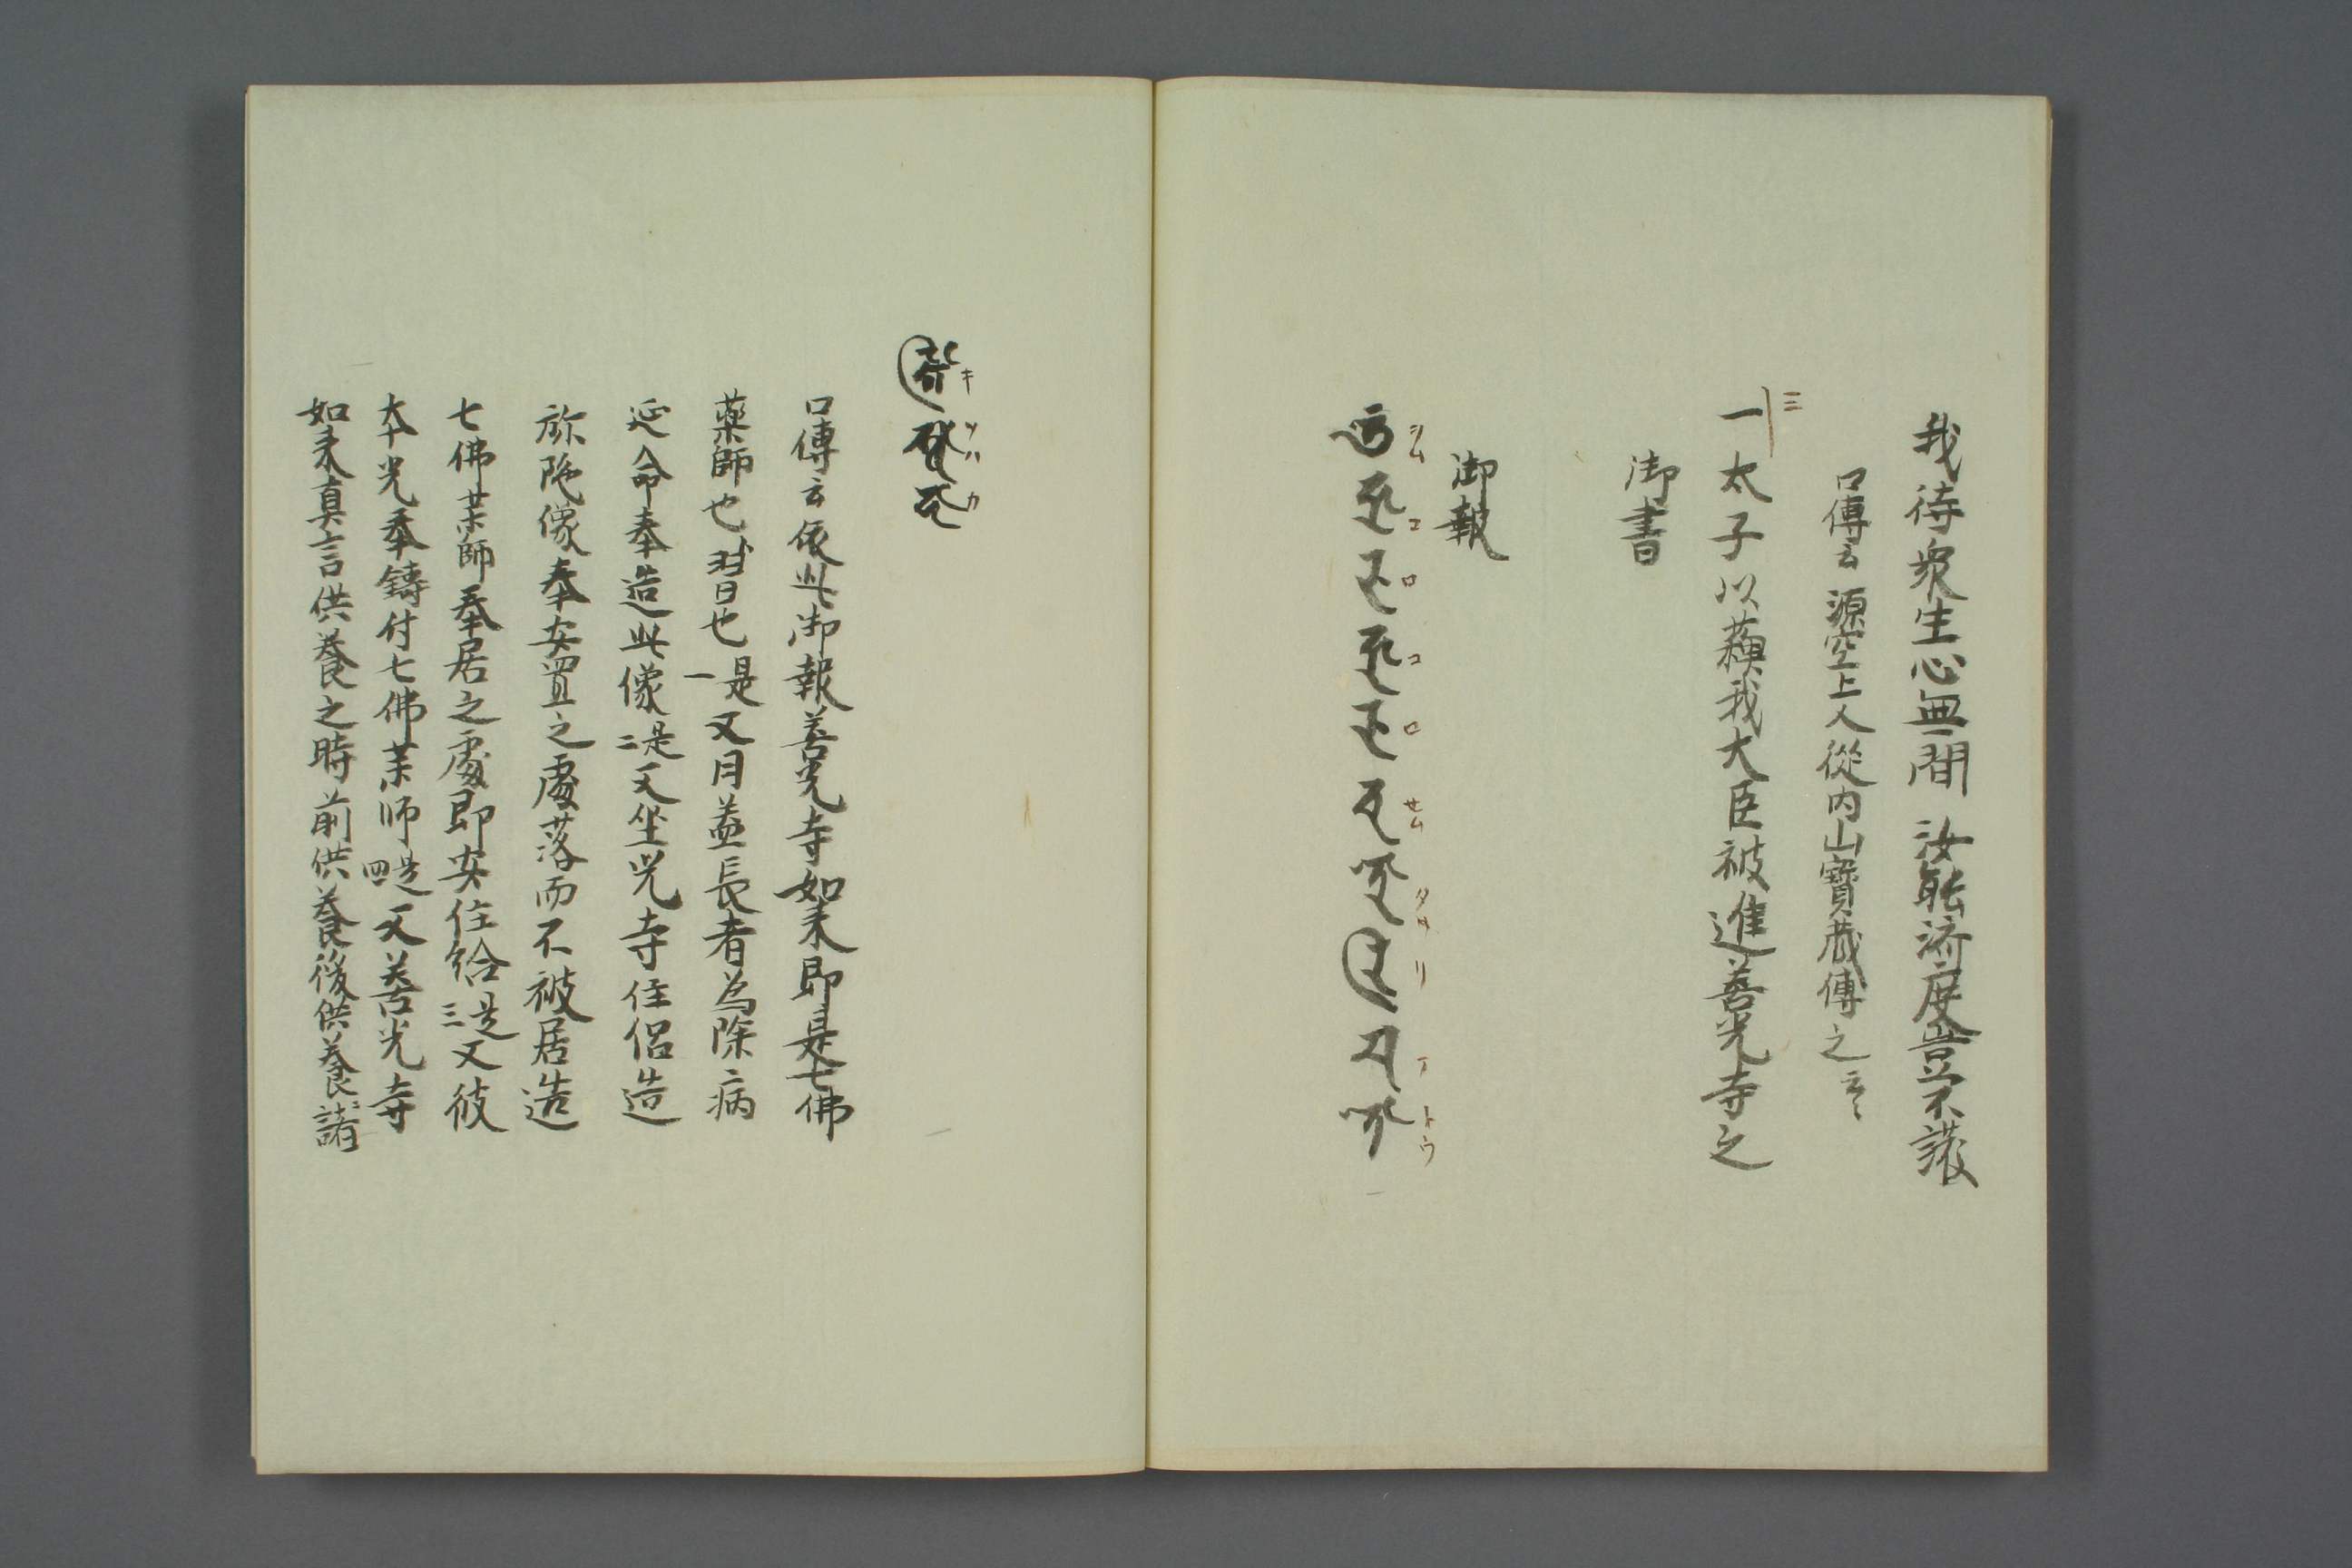 我待衆生心無間 汝能済度豈不護
口傳云 源空上人從内山寶蔵傳之 云々
三
一 太子以蘓我大臣被進善光寺之
御書
御報
シム コ ロ コ ロ サム タリ トウ
キ ソハ カ
口傳云依此御報善光寺如来即是七佛
薬師也 習也 是一 又月蓋長者為除病
延命奉造此像 是二 又坐光寺住侶造
弥陀像奉安置之處落而不被居造
七佛薬師奉居之處即安住給 是三 又彼
本光奉鑄付七佛薬师 是四 又善光寺
如来真言供養之時前供養後供養諸